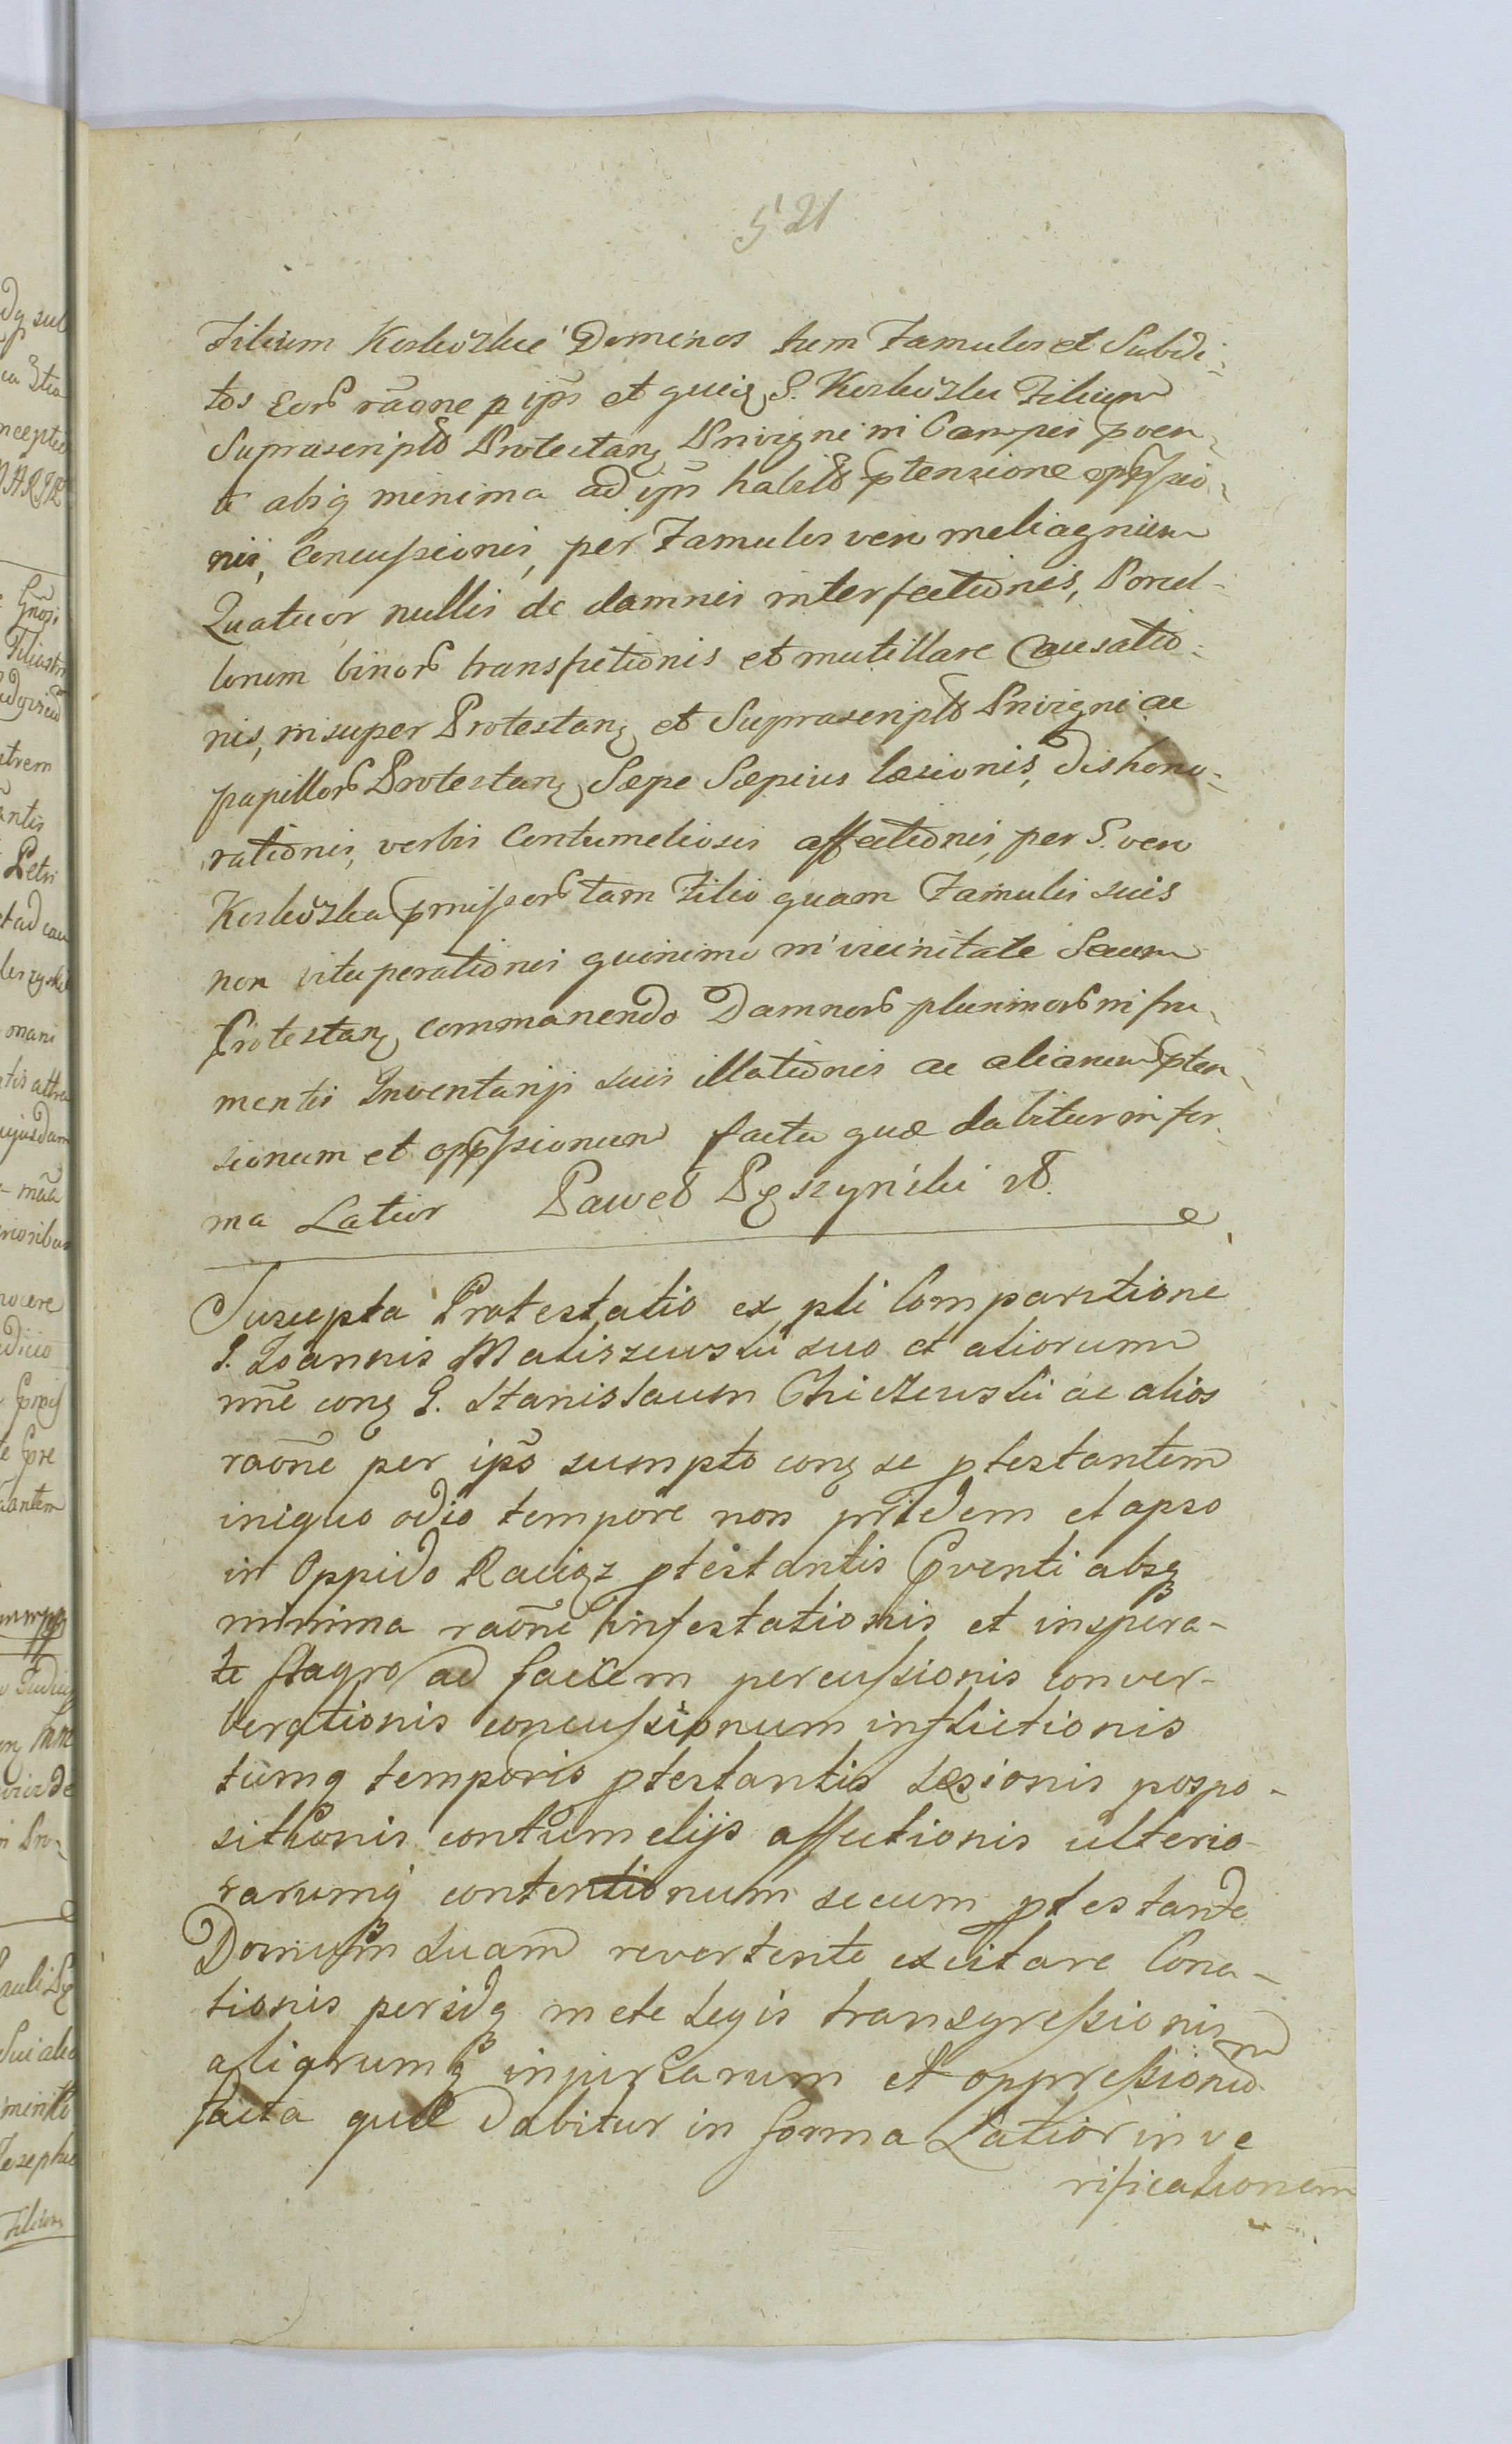 521
Filium Koskózki Dominos tum Famulos et Subdi-
tos eor raone p ips et gueiq G. Koskózki Filium
Suprascripto Protestanq Privigni in Campis pven-
ti absq minima ad ips habito ptensione oppssio-
nis, Concussionis, per Famulos vero meliagrium
Quatuor nullis de damnis interfectionis, Porcel-
lorum binor transfictionis et mutillare Causatio-
nis, insuper Protestanq et Suprascripto Privigni ac
pupillor Protestanq Sæpe Sæpius læsionis, dishono-
rationis, verbis Contumeliosis affectionis, per G. vero
Koskózka pmissor tam Filio quam Famulis suis
non vituperationis quinimo in vicinitate Secum
Protestanq commanendo Damnor plurimor in fru-
mentis Inventarij suis illationis ac aliarum pten-
sionum et oppssionum facta quæ dabitur in for-
ma Latior Paweł Pęszyński
Suscepta Protestatio ex pli Comparitione
G. Joannis Maliszewski suo et aliorum
nne conq G. Stanislaum Chiczewski ac alios
raone per ips sumpto conq se ptestantem
iniquo odio tempore non pridem elapso
in Oppido Raciąz ptestantis Cpventi absq
minima raone infestationis et inspera-
te flagro ad faciem percussionis conver-
berationis concussionum inflictionis
tumq temporis ptestantis Læsionis pospo-
sitionis contumelijs affectionis ulterio-
rarumq contentionum secum ptestante
Domum suam revertente excitare Cona-
tionis persidq mete Legis transgressionis
aliarumq injuriarum et oppressionum
facta quæ dabitur in forma Latior in ve
rificationem